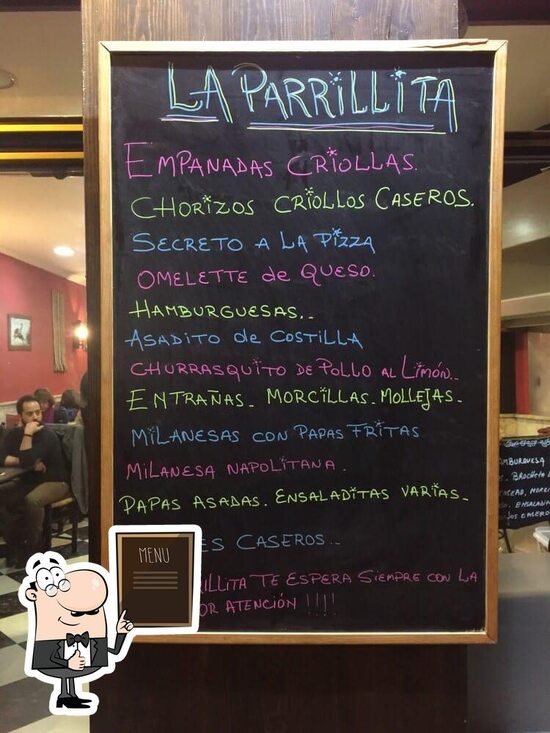 LA PARRILLITA
EMPANADAS CRIOLLAS.
CHORIZOS CRIOLLOS CASEROS.
SECRETO A LA PIZZA
OMELETTE de QUESO.
HAMBURGUESAS..
ASADITO de COSTILLA
CHURRASQUITO DE POLLO AL LIMÓN..
ENTRAÑAS. MORCILLAS. MOLLEJAS.
MILANESAS CON PAPAS FRITAS
MILANESA NAPOLITANA.
PAPAS ASADAS. ENSALADITAS VARIAS.
CASEROS..
TE ESPERA SIEMPRE CON LA
ATENCIÓN !!!!
MENU